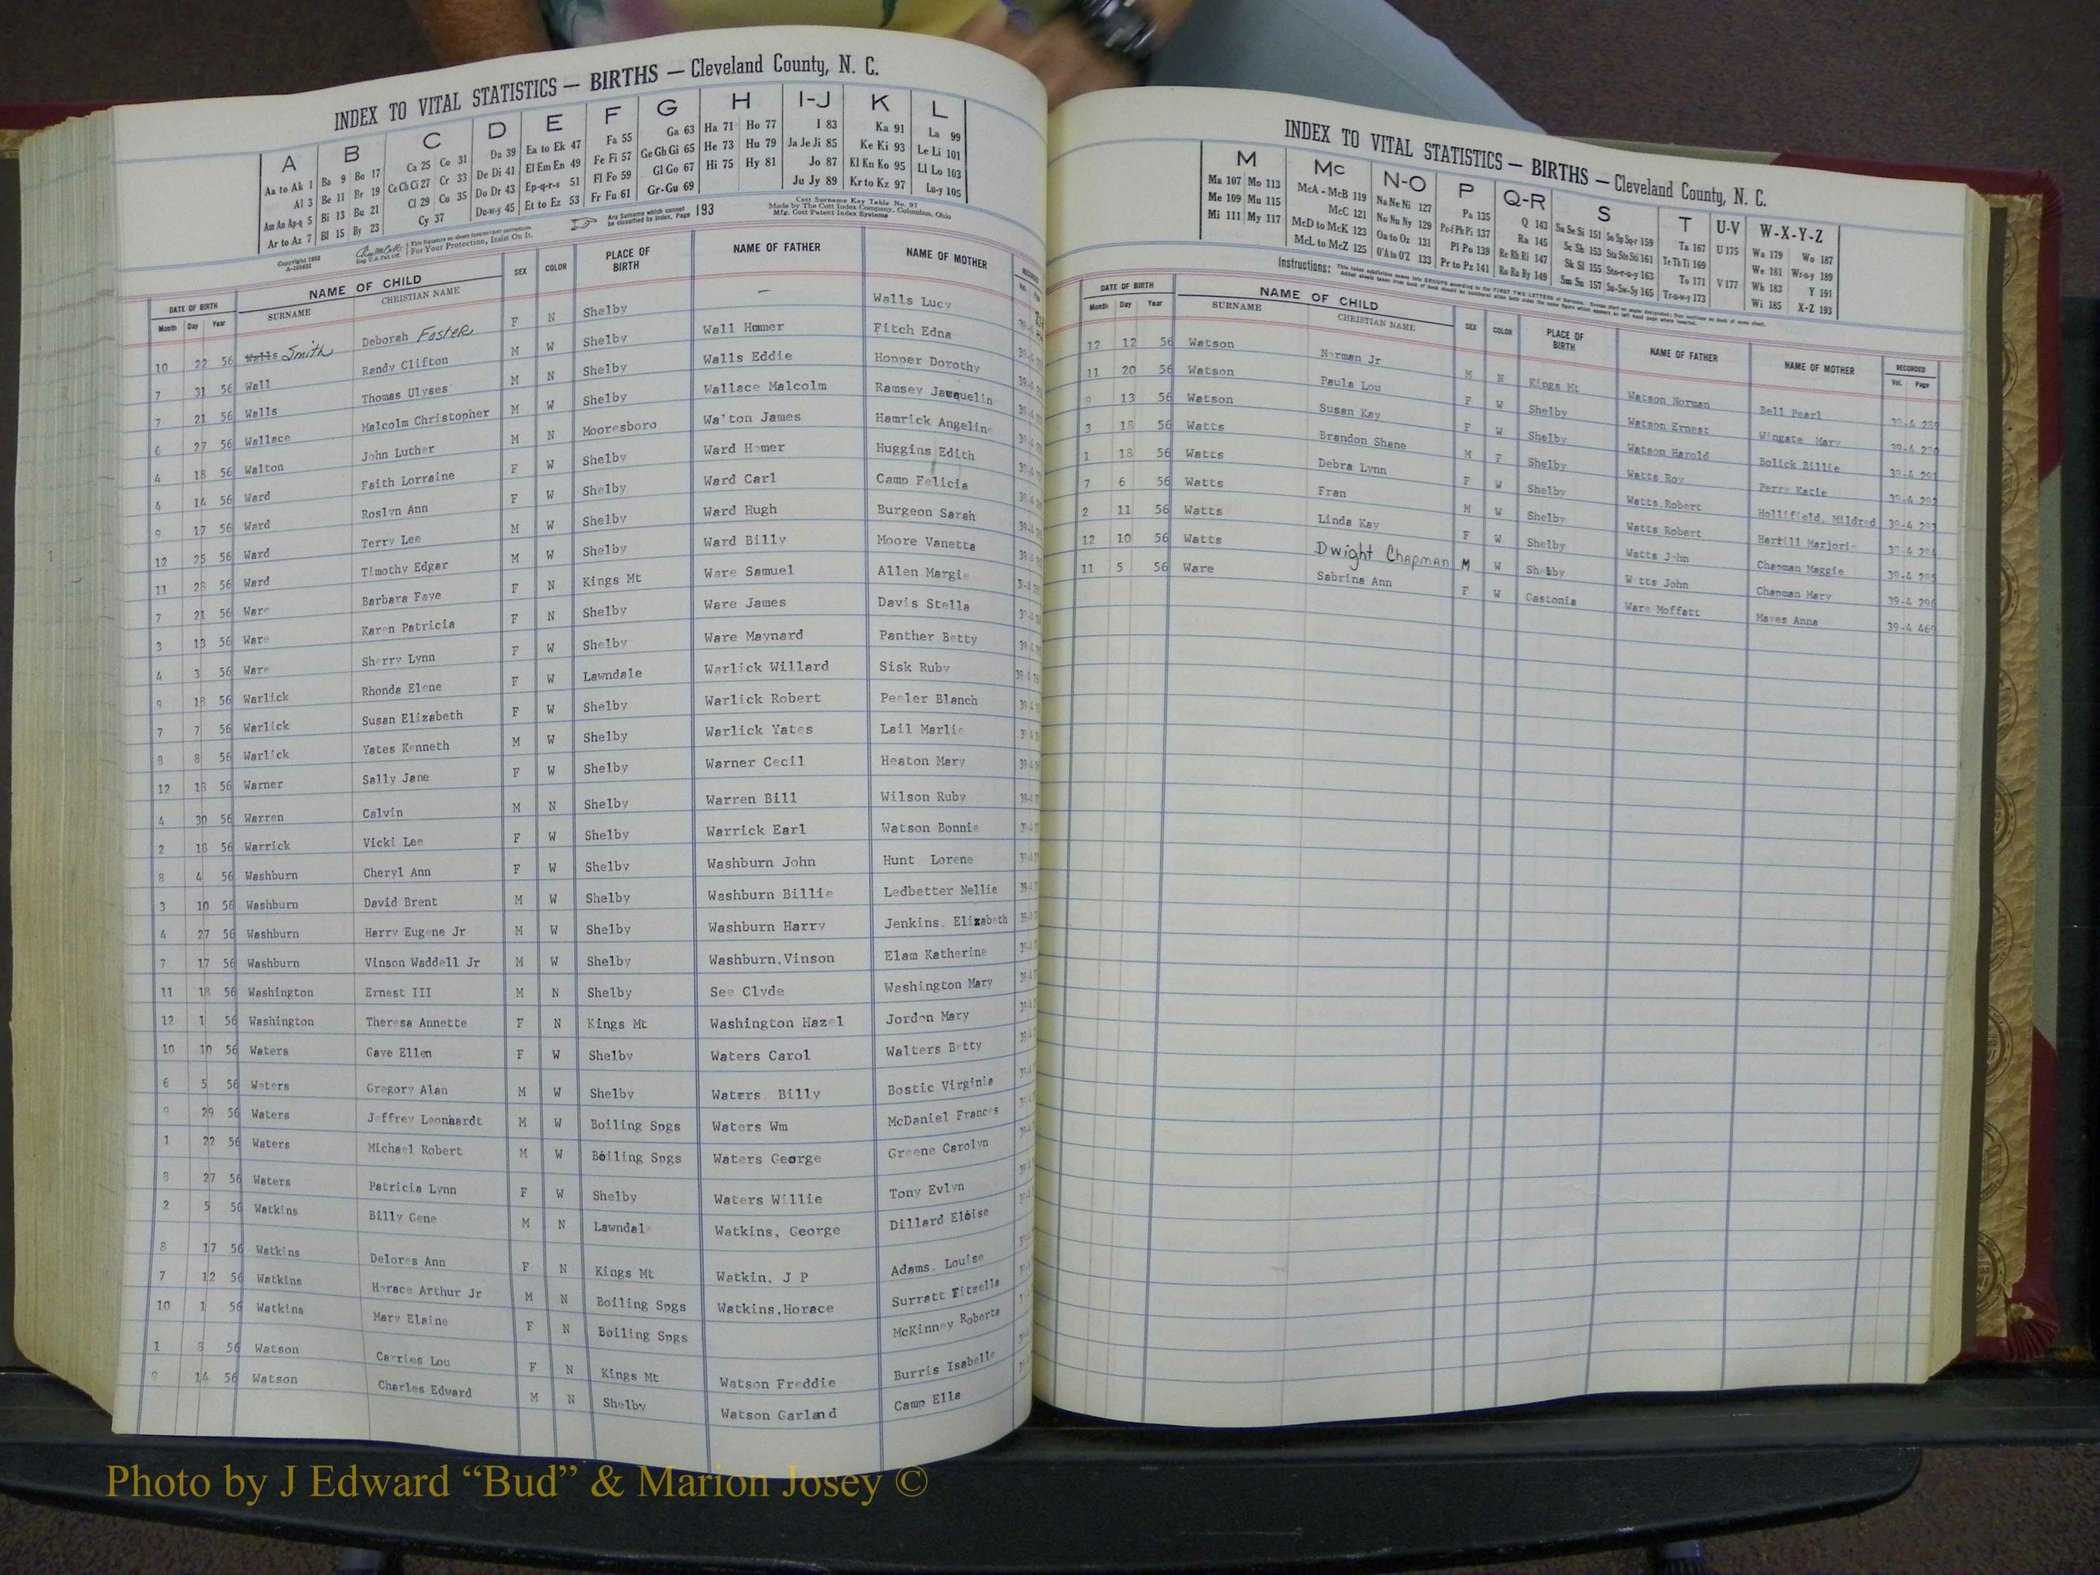 INDEX TO VITAL STATISTICS — BIRTHS — Cleveland County, N. C.
A B C D E F G H I-J K L
Aa to Ak 1 Ba 9 Bo 17 Ca 25 Co 31 Da 39 Ea to Ek 47 Fa 55 Ga 63 Ha 71 Ho 77 I 83 Ka 91 La 99
Al 3 Be 11 Br 19 Ce Ch Ci 27 Cr 33 De Di 41 El Em En 49 Fe Fi 57 Ge Gh Gi 65 He 73 Hu 79 Ja Je Ji 85 Ke Ki 93 Le Li 101
Am An Ap-q 5 Bi 13 Bu 21 Cl 29 Cu 35 Do Dr 43 Ep-q-r-s 51 Fl Fo 59 Gl Go 67 Hi 75 Hy 81 Jo 87 Kl Kn Ko 95 Ll Lo 103
Ar to Az 7 Bl 15 By 23 Cy 37 Du-w-y 45 Et to Ez 53 Fr Fu 61 Gr-Gu 69 Ju Jy 89 Kr to Kz 97 Lu-y 105
For Your Protection, Insist On It.
Any Surname which cannot be classified by Index, Page 193
Cott Surname Key Table No. 97
Made by The Cott Index Company, Columbus, Ohio
Mfg. Cott Patent Index Systems
DATE OF BIRTH NAME OF CHILD SEX COLOR PLACE OF BIRTH NAME OF FATHER NAME OF MOTHER
Month Day Year SURNAME CHRISTIAN NAME
10 22 56 Walls Smith Deborah Foster F N Shelby — Walls Lucy
7 31 56 Wall Randy Clifton M W Shelby Wall Hommer Fitch Edna
7 21 56 Walls Thomas Ulyses M N Shelby Walls Eddie Hopper Dorothy
6 27 56 Wallace Malcolm Christopher M W Shelby Wallace Malcolm Ramsey Jacquelin
4 18 56 Walton John Luther M N Mooresboro Walton James Hamrick Angeline
4 14 56 Ward Faith Lorraine F W Shelby Ward Homer Huggins Edith
9 17 56 Ward Roslyn Ann F W Shelby Ward Carl Camp Felicia
12 25 56 Ward Terry Lee M W Shelby Ward Hugh Burgeon Sarah
11 28 56 Ward Timothy Edgar M W Shelby Ward Billy Moore Vanetta
7 21 56 Ware Barbara Faye F N Kings Mt Ware Samuel Allen Margie
3 13 56 Ware Karen Patricia F N Shelby Ware James Davis Stella
4 3 56 Ware Sherry Lynn F W Shelby Ware Maynard Panther Betty
9 18 56 Warlick Rhonda Elene F W Lawndale Warlick Willard Sisk Ruby
7 7 56 Warlick Susan Elizabeth F W Shelby Warlick Robert Peeler Blanch
8 8 56 Warlick Yates Kenneth M W Shelby Warlick Yates Lail Marlie
12 18 56 Warner Sally Jane F W Shelby Warner Cecil Heaton Mary
4 30 56 Warren Calvin M N Shelby Warren Bill Wilson Ruby
2 18 56 Warrick Vicki Lee F W Shelby Warrick Earl Watson Bonnie
8 4 56 Washburn Cheryl Ann F W Shelby Washburn John Hunt Lorene
3 10 56 Washburn David Brent M W Shelby Washburn Billie Ledbetter Nellie
4 27 56 Washburn Harry Eugene Jr M W Shelby Washburn Harry Jenkins, Elizabeth
7 17 56 Washburn Vinson Waddell Jr M W Shelby Washburn,Vinson Elam Katherine
11 18 56 Washington Ernest III M N Shelby See Clyde Washington Mary
12 1 56 Washington Theresa Annette F N Kings Mt Washington Hazel Jordon Mary
10 10 56 Waters Gaye Ellen F W Shelby Waters Carol Walters Betty
6 5 56 Waters Gregory Alan M W Shelby Waters. Billy Bostic Virginia
9 29 56 Waters Jeffrey Leonhardt M W Boiling Spgs Waters Wm McDaniel Frances
1 22 56 Waters Michael Robert M W Boiling Spgs Waters George Greene Carolyn
8 27 56 Waters Patricia Lynn F W Shelby Waters Willie Tony Evlyn
2 5 56 Watkins Billy Gene M N Lawndale Watkins, George Dillard Eloise
8 17 56 Watkins Delores Ann F N Kings Mt Watkin, J P Adams. Louise
7 12 56 Watkins Horace Arthur Jr M N Boiling Spgs Watkins,Horace Surratt Fitzella
10 1 56 Watkins Mary Elaine F N Boiling Spgs McKinney Roberta
1 8 56 Watson Carries Lou F N Kings Mt Watson Freddie Burris Isabelle
9 14 56 Watson Charles Edward M N Shelby Watson Garland Camp Ella
INDEX TO VITAL STATISTICS — BIRTHS — Cleveland County, N. C.
M Mc N-O P Q-R S T U-V W-X-Y-Z
Ma 107 Mo 113 McA - McB 119 Na Ne Ni 127 Pa 135 Q 143 Sa Se Si 151 So Sp Sq-r 159 Ta 167 U 175 Wa 179 Wo 187
Me 109 Mu 115 McC 121 No Nu Ny 129 Pe-f Ph Pi 137 Ra 145 Sc Sh 153 Sta Ste Sti 161 Te Th Ti 169 V 177 We 181 Wr-u-y 189
Mi 111 My 117 McD to McK 123 Oa to Oz 131 Pl Po 139 Re Rh Ri 147 Sk Sl 155 Sto-r-u-y 163 To 171 Wh 183 Y 191
McL to McZ 125 O'A to O'Z 133 Pr to Pz 141 Ro Ru Ry 149 Sm Sn 157 Su-Sw-Sy 165 Tr-u-w-y 173 Wi 185 X-Z 193
Instructions:
DATE OF BIRTH NAME OF CHILD SEX COLOR PLACE OF BIRTH NAME OF FATHER NAME OF MOTHER RECORDED
Month Day Year SURNAME CHRISTIAN NAME Vol. Page
12 12 56 Watson Norman Jr M N Kings Mt Watson Norman Bell Pearl 39-4 289
11 20 56 Watson Paula Lou F W Shelby Watson Ernest Wingate Mary 39-4 290
9 13 56 Watson Susan Kay F W Shelby Watson Harold Bolick Billie 39-4 291
3 18 56 Watts Brandon Shane M F Shelby Watts Roy Perry Katie 39-4 292
1 18 56 Watts Debra Lynn F W Shelby Watts,Robert Hollifield, Mildred 39-4 293
7 6 56 Watts Fran M W Shelby Watts Robert Harrill Marjorie 39-4 294
2 11 56 Watts Linda Kay F W Shelby Watts John Chapman Maggie 39-4 295
12 10 56 Watts Dwight Chapman M W Shelby Watts John Chapman Mary 39-4 296
11 5 56 Ware Sabrina Ann F W Gastonia Ware Moffatt Mayes Anna 39-4 469
Photo by J Edward “Bud” & Marion Josey ©